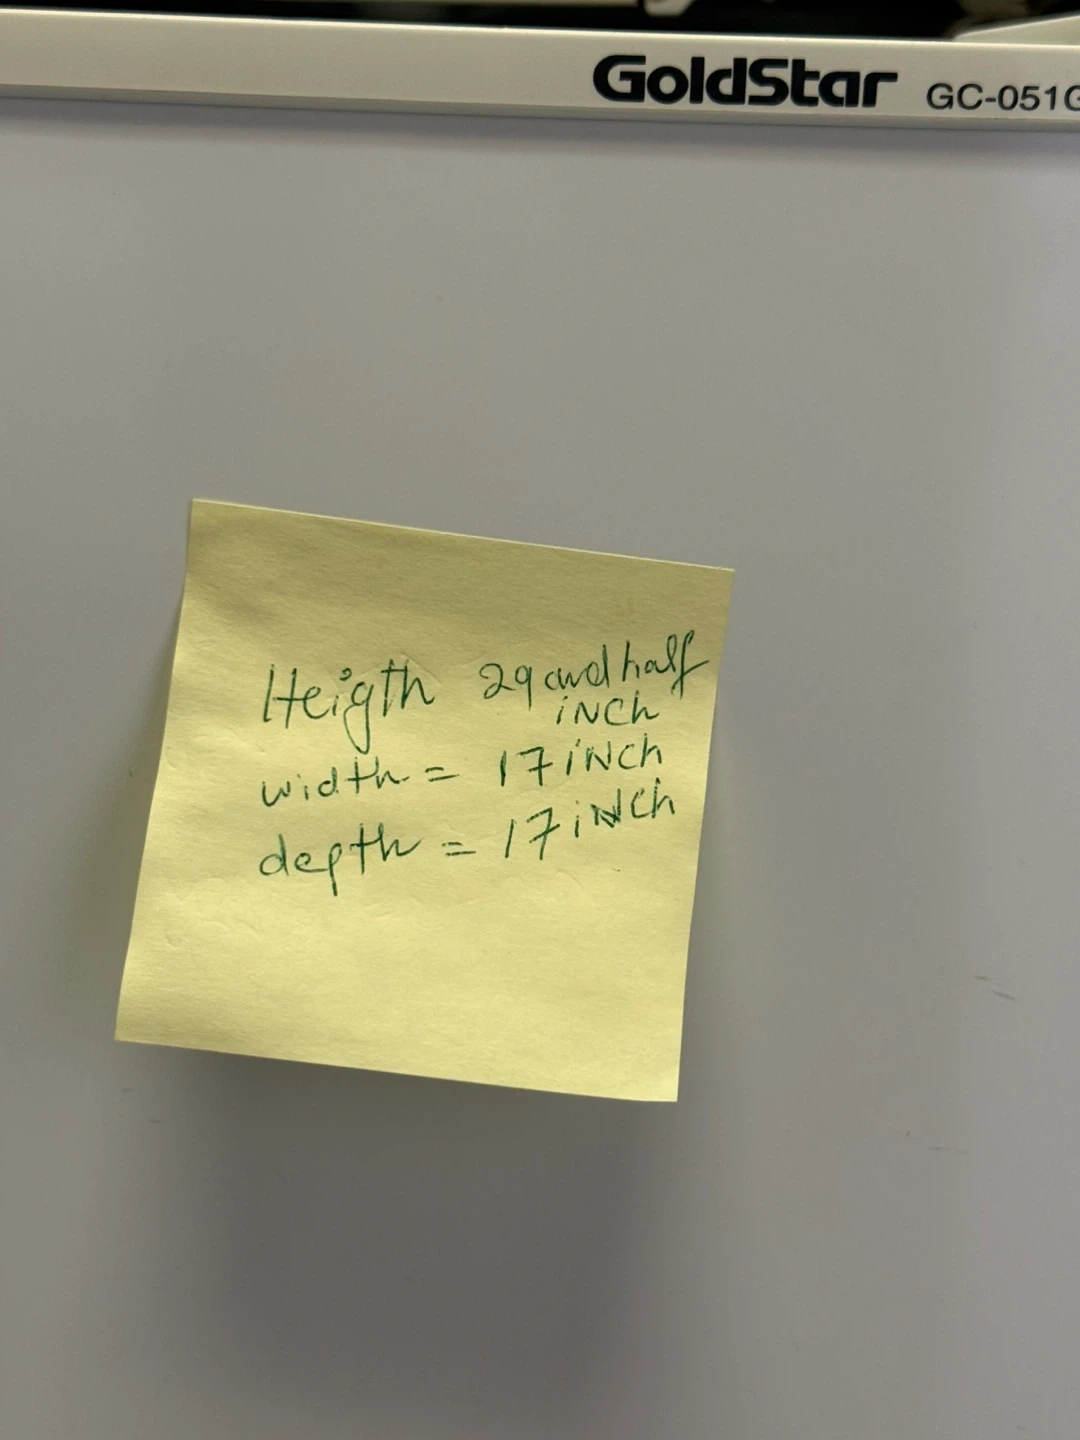 GoldStar GC-051G
Heigth 29 and half
inch
width = 17 inch
depth = 17 inch